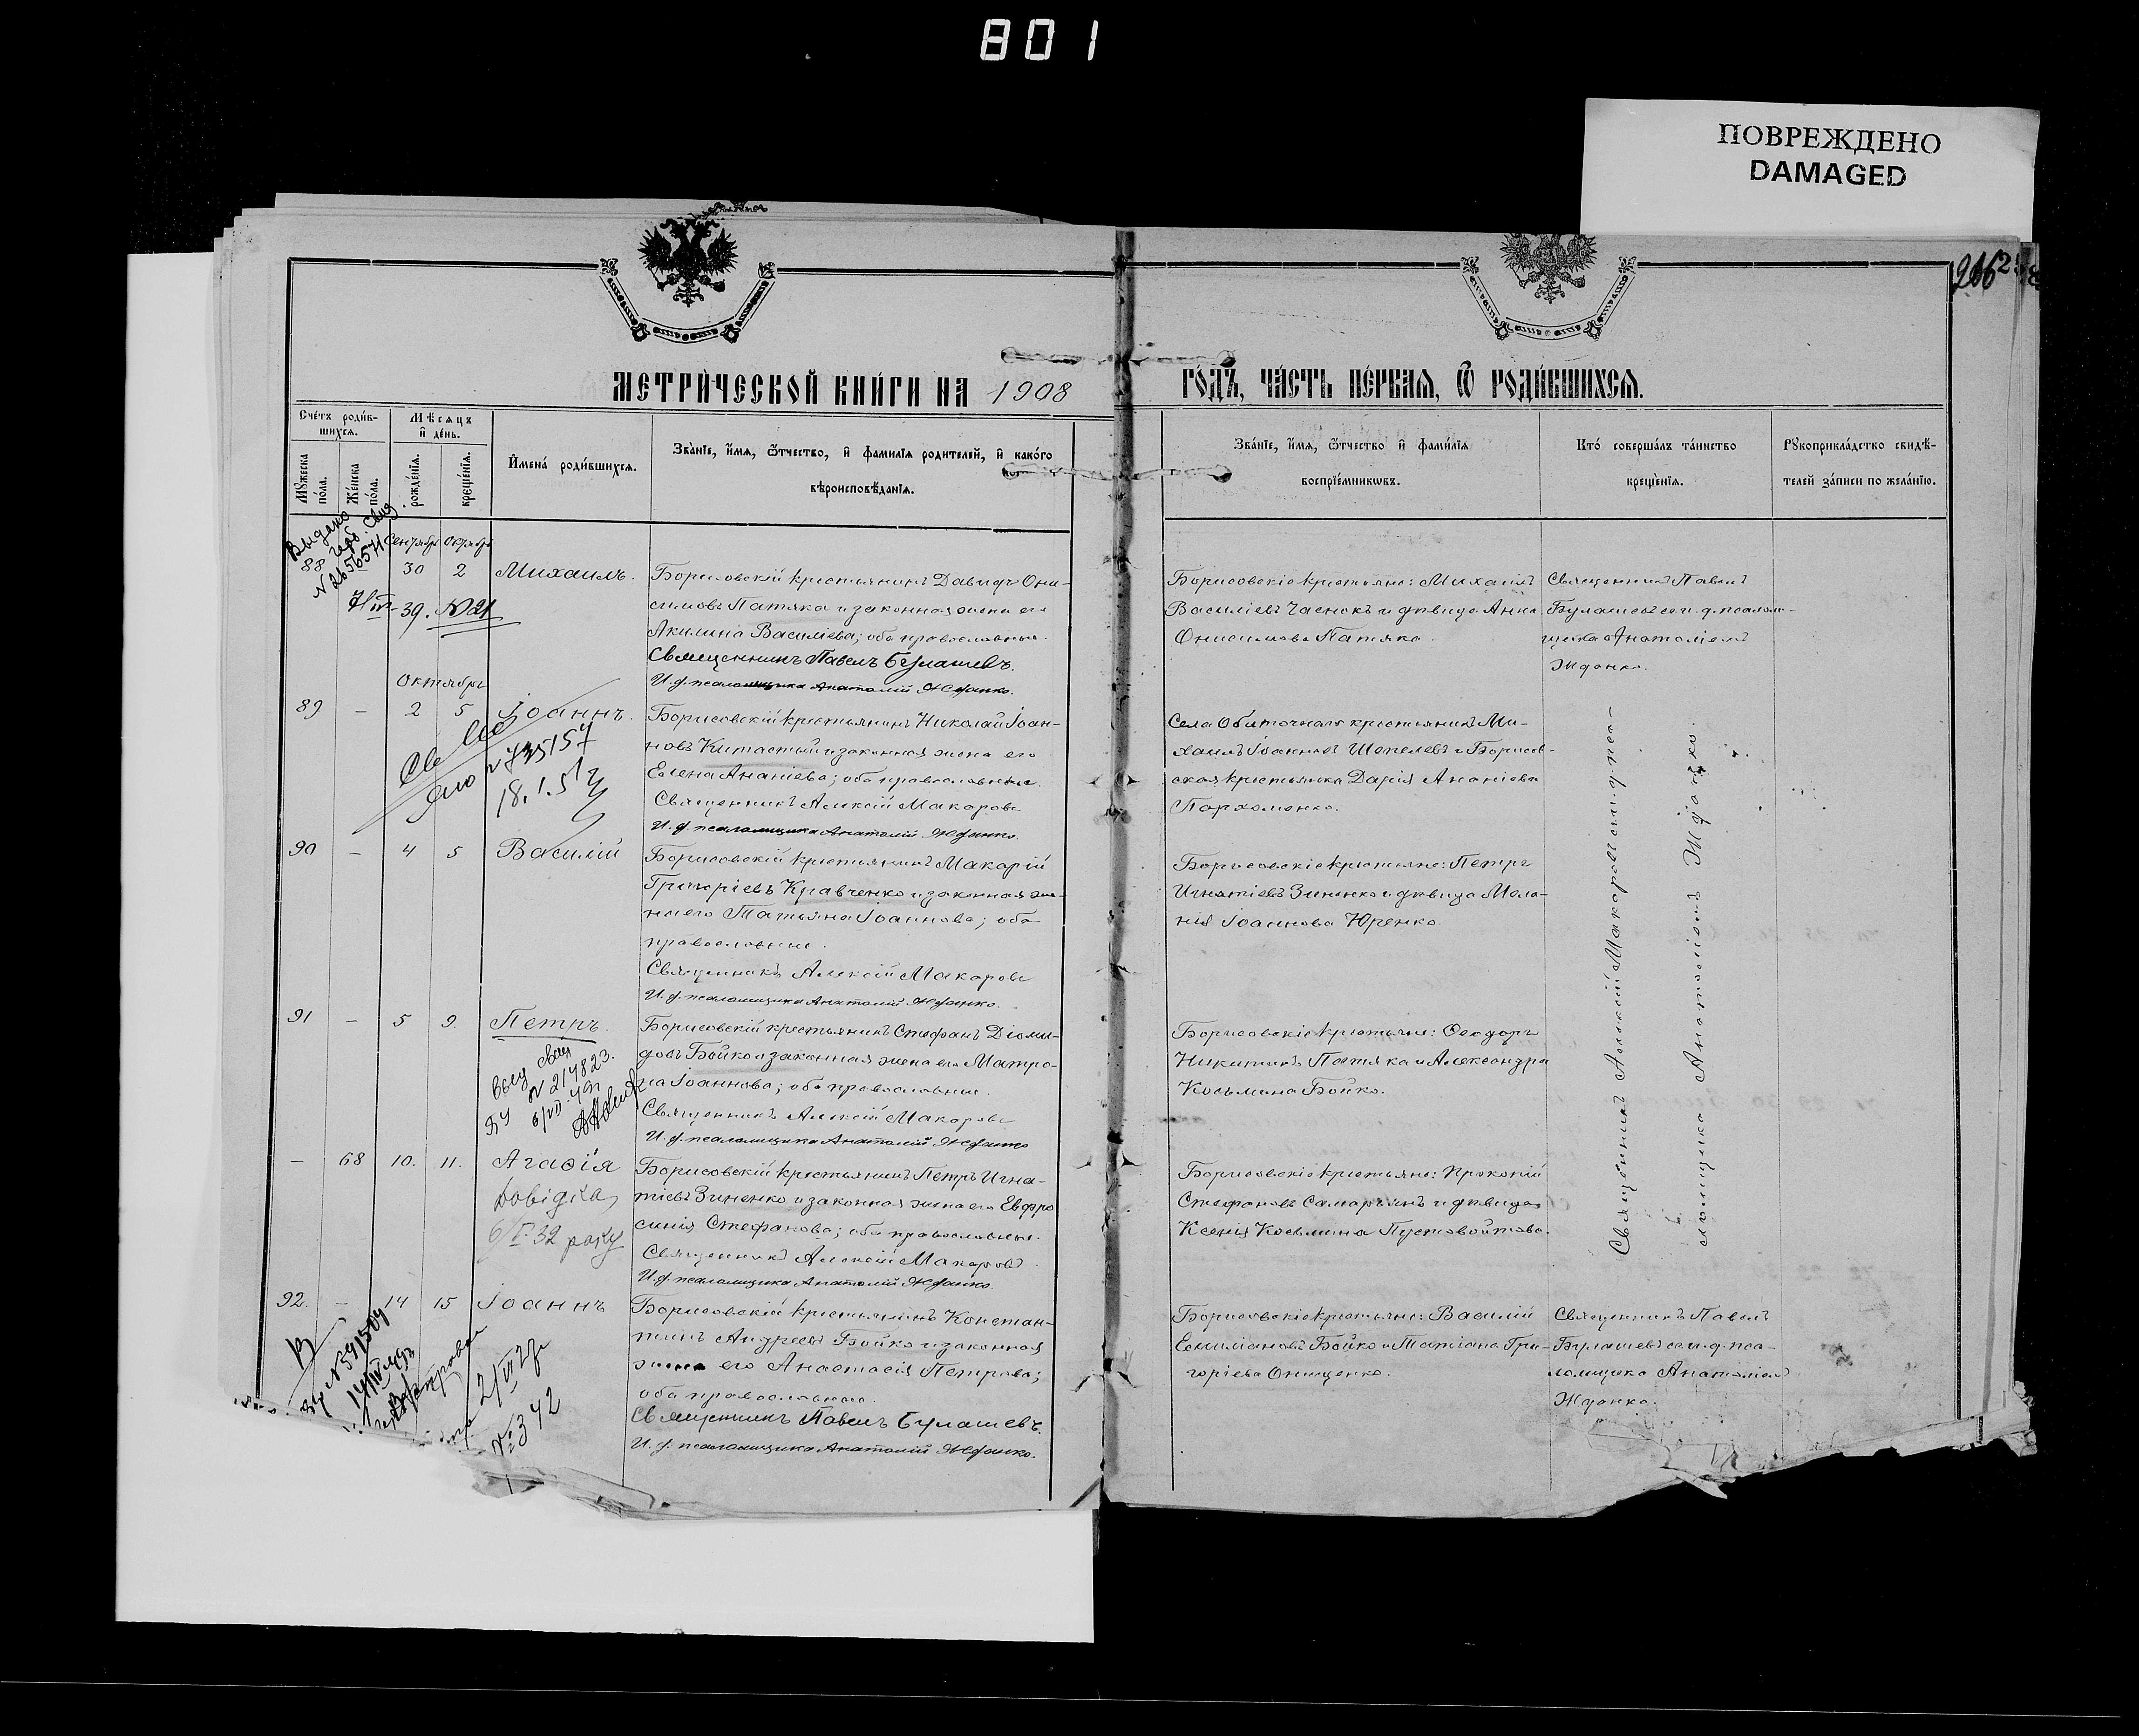 801
ПОВРЕЖДЕНО
DAMAGED
266
МЕТРИЧЕСКОЙ КНИГИ НА 1908
ГОДЪ, ЧАСТЬ ПЕРВАЯ, Ѿ РОДИВШИХСЯ.
Счетъ родив-
шихся.
Мужеска
пола.
Женска
пола.
Мѣсяцъ
и день.
рожденія.
крещенія.
Имена родившихся.
Званіе, имя, ѿчество, и фамилія родителей, и какого
вѣроисповѣданія.
Званіе, имя, ѿчество и фамилія
воспріемниковъ.
Кто совершалъ таинство
крещенія.
Рукоприкладство свидѣ-
телей записи по желанію.
Выдано
свид.
Сентябрь Октябрь
88 30 2 Михаилъ.
39. №21
Борисовскій крестьянинъ Давидъ Они-
симовъ Патяка и законная жена его
Акилина Василіева; оба православные.
Священникъ Павелъ Булашевъ.
И. д. псаломщика Анатолій Жданко.
Борисовскіе крестьяне: Михаилъ
Василіевъ Чаенокъ и дѣвица Анна
Онисимова Патяка.
Священникъ Павелъ
Булашевъ съ и. д. псалом-
щика Анатоліемъ
Жданко.
Октябрь
89 — 2 5 Іоаннъ.
18.1.51
Борисовскій крестьянинъ Николай Іоан-
новъ Китастый и законная жена его
Елена Ананіева; оба православные.
Священникъ Алексій Макаровъ
И. д. псаломщика Анатолій Жданко.
Села Обиточнаго крестьянинъ Ми-
хаилъ Іоанновъ Шепелевъ и Борисов-
ская крестьянка Дарія Ананіева
Пархоменко.
Священникъ Алексій Макаровъ съ и. д. пса-
ломщика Анатоліемъ Жданко.
90 — 4 5 Василій
Борисовскій крестьянинъ Макарій
Григоріевъ Кравченко и законная же-
на его Татьяна Іоаннова; оба
православные.
Священникъ Алексій Макаровъ
И. д. псаломщика Анатолій Жданко.
Борисовскіе крестьяне: Петръ
Игнатіевъ Зиненко и дѣвица Мела-
нія Іоаннова Юренко.
91 — 5 9. Петръ.
свид
N 214823.
Борисовскій крестьянинъ Стефанъ Діоми-
довъ Бойко и законная жена его Матро-
на Іоаннова; оба православные.
Священникъ Алексій Макаровъ
И. д. псаломщика Анатолій Жданко
Борисовскіе крестьяне: Ѳеодоръ
Никитинъ Патяка и Александра
Косьмина Бойко.
— 68 10. 11. Агаѳія
Довідка
6/V-32 року
Борисовскій крестьянинъ Петръ Игна-
тіевъ Зиненко и законная жена его Евфро
синія Стефанова; оба православные.
Священникъ Алексій Макаровъ.
И. д. псаломщика Анатолій Жданко.
Борисовскіе крестьяне: Прокопій
Стефановъ Самарынъ и дѣвица
Ксенія Косьмина Пустовойтова.
92. — 14 15 Іоаннъ
№342
Борисовскій крестьянинъ Констан-
тинъ Андреевъ Бойко и законная
жена его Анастасія Петрова;
оба православные.
Священникъ Павелъ Булашевъ.
И. д. псаломщика Анатолій Жданко.
Борисовскіе крестьяне: Василій
Емиліановъ Бойко и Татіана Гри-
горіева Онищенко.
Священникъ Павелъ
Булашевъ съ и. д. пса-
ломщика Анатоліемъ
Жданко.